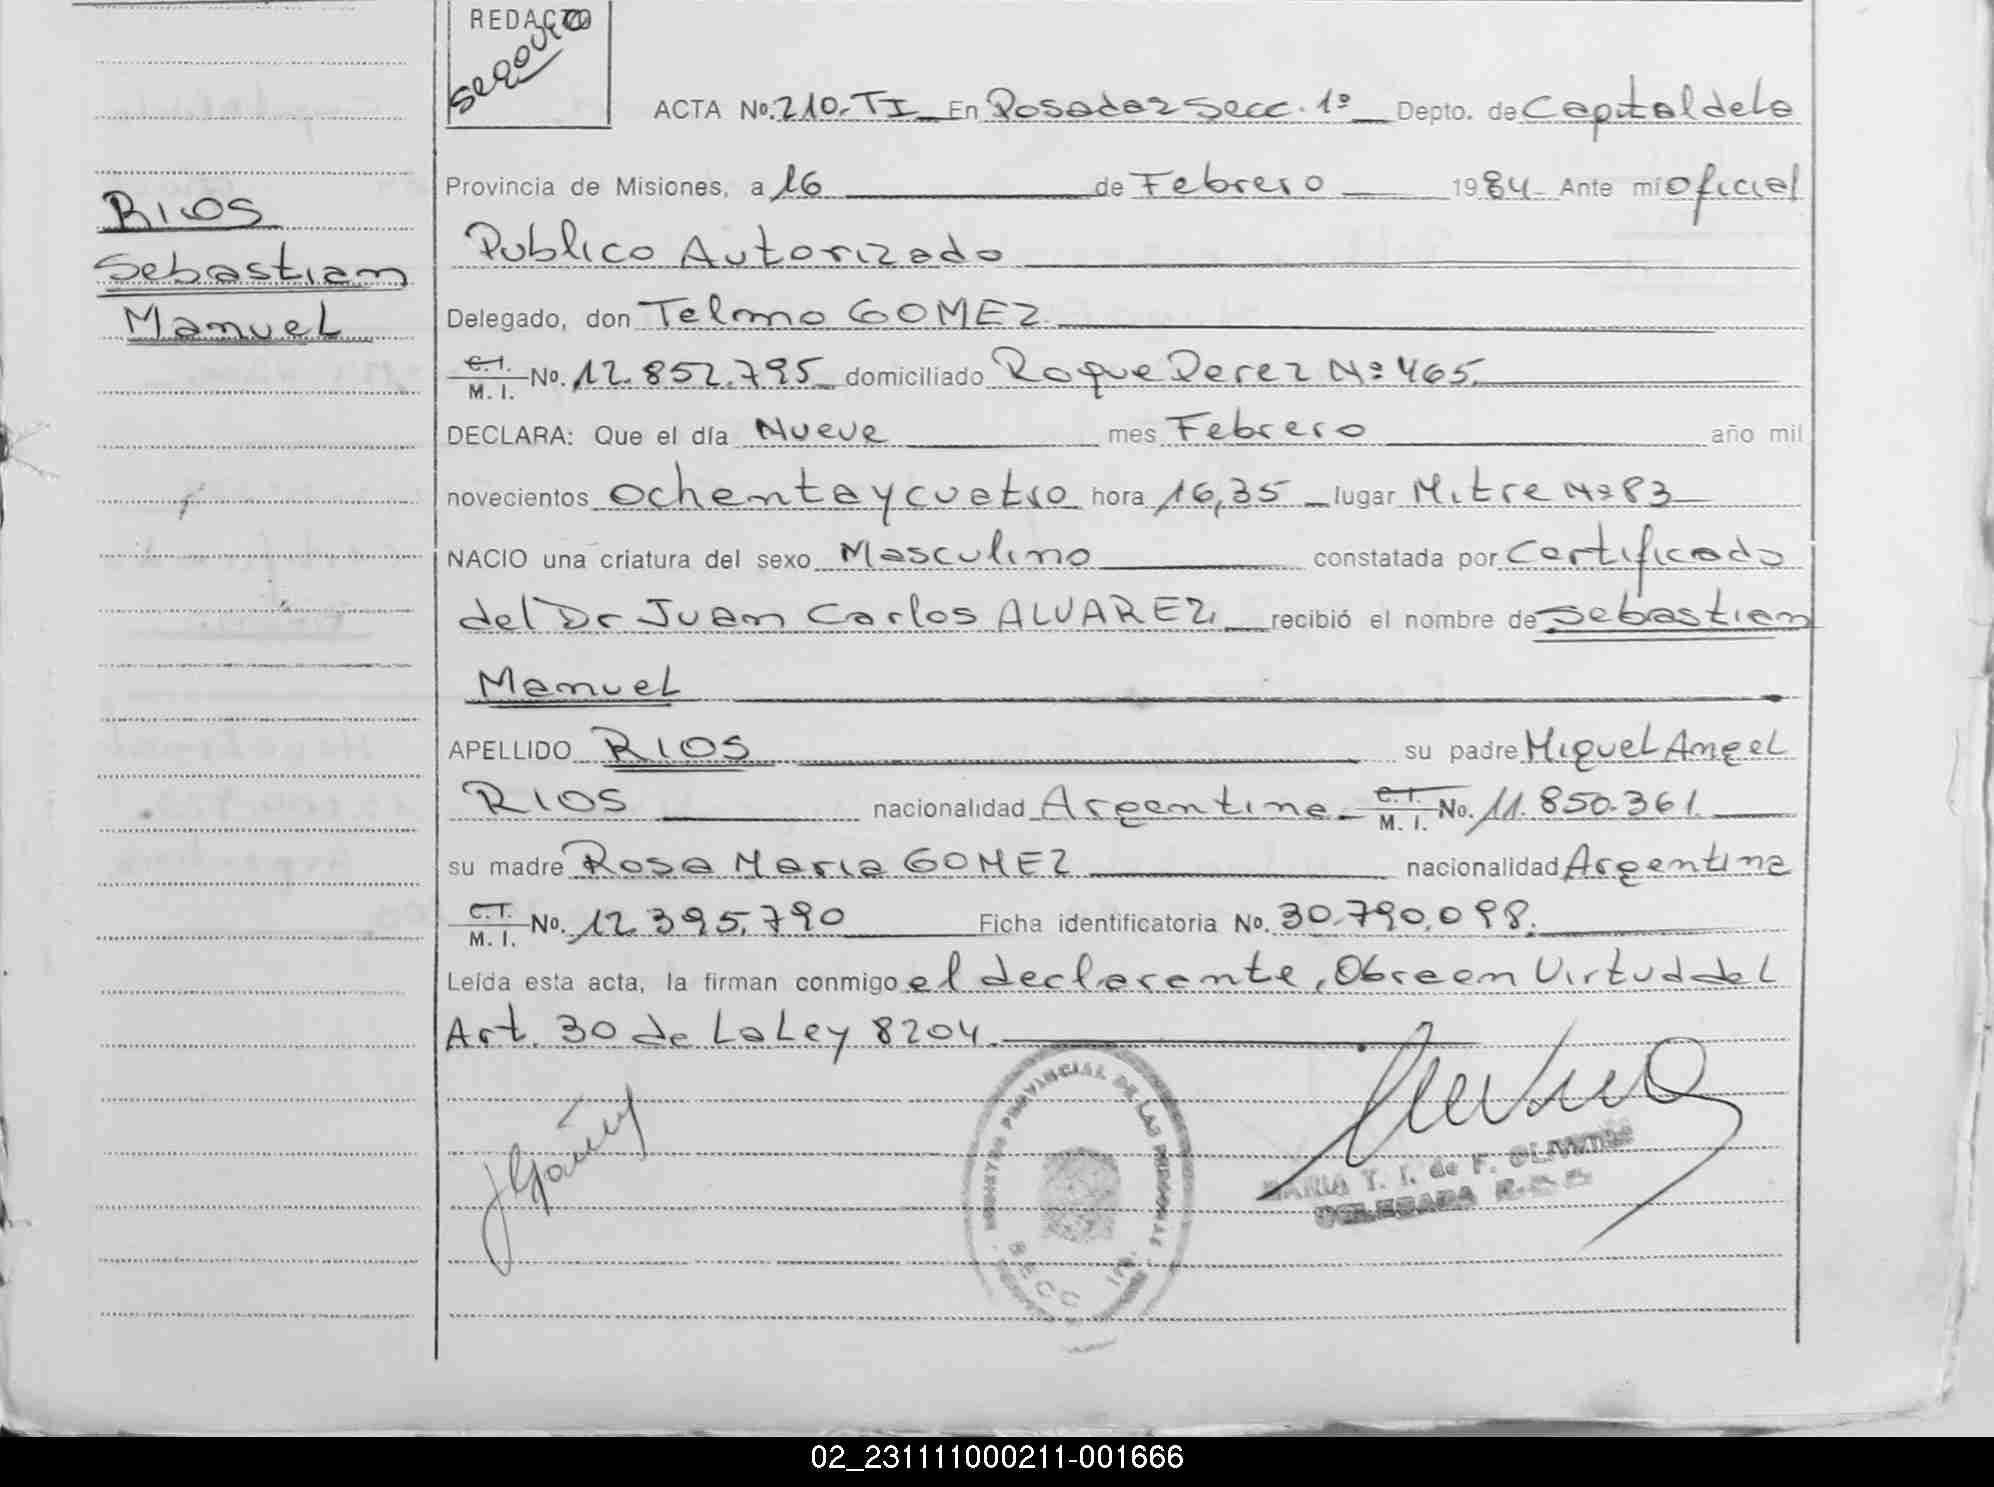 REDACTO
ACTA No. 210. TI En Posadas Secc. 1º Depto. de Capital de la
Provincia de Misiones, a 16 de Febrero 1984 Ante mi oficial
Publico Autorizado
Delegado, don Telmo GOMEZ
C.I. M. I. No. 12.852.795 domiciliado Roque Perez Nº 465
DECLARA: Que el día Nueve mes Febrero año mil
novecientos ochenta y cuatro hora 16,35 lugar Mitre Nº 83
NACIO una criatura del sexo Masculino constatada por Certificado
del Dr Juan Carlos ALVAREZ, recibió el nombre de Sebastian
Manuel
APELLIDO RIOS su padre Miguel Angel
RIOS nacionalidad Argentina C.I. M. I. No. 11.850.361
su madre Rosa Maria GOMEZ nacionalidad Argentina
C.I. M. I. No. 12.395.790 Ficha identificatoria No. 30.790.098.
Leída esta acta, la firman conmigo el declarante, Obra en Virtud del
Art. 30 de La Ley 8204.
RIOS
Sebastian
Manuel
PROVINCIAL DE LAS PERSONAS
SECC 1ra.
MARIA T. I. de F.
DELEGADA
02_231111000211-001666